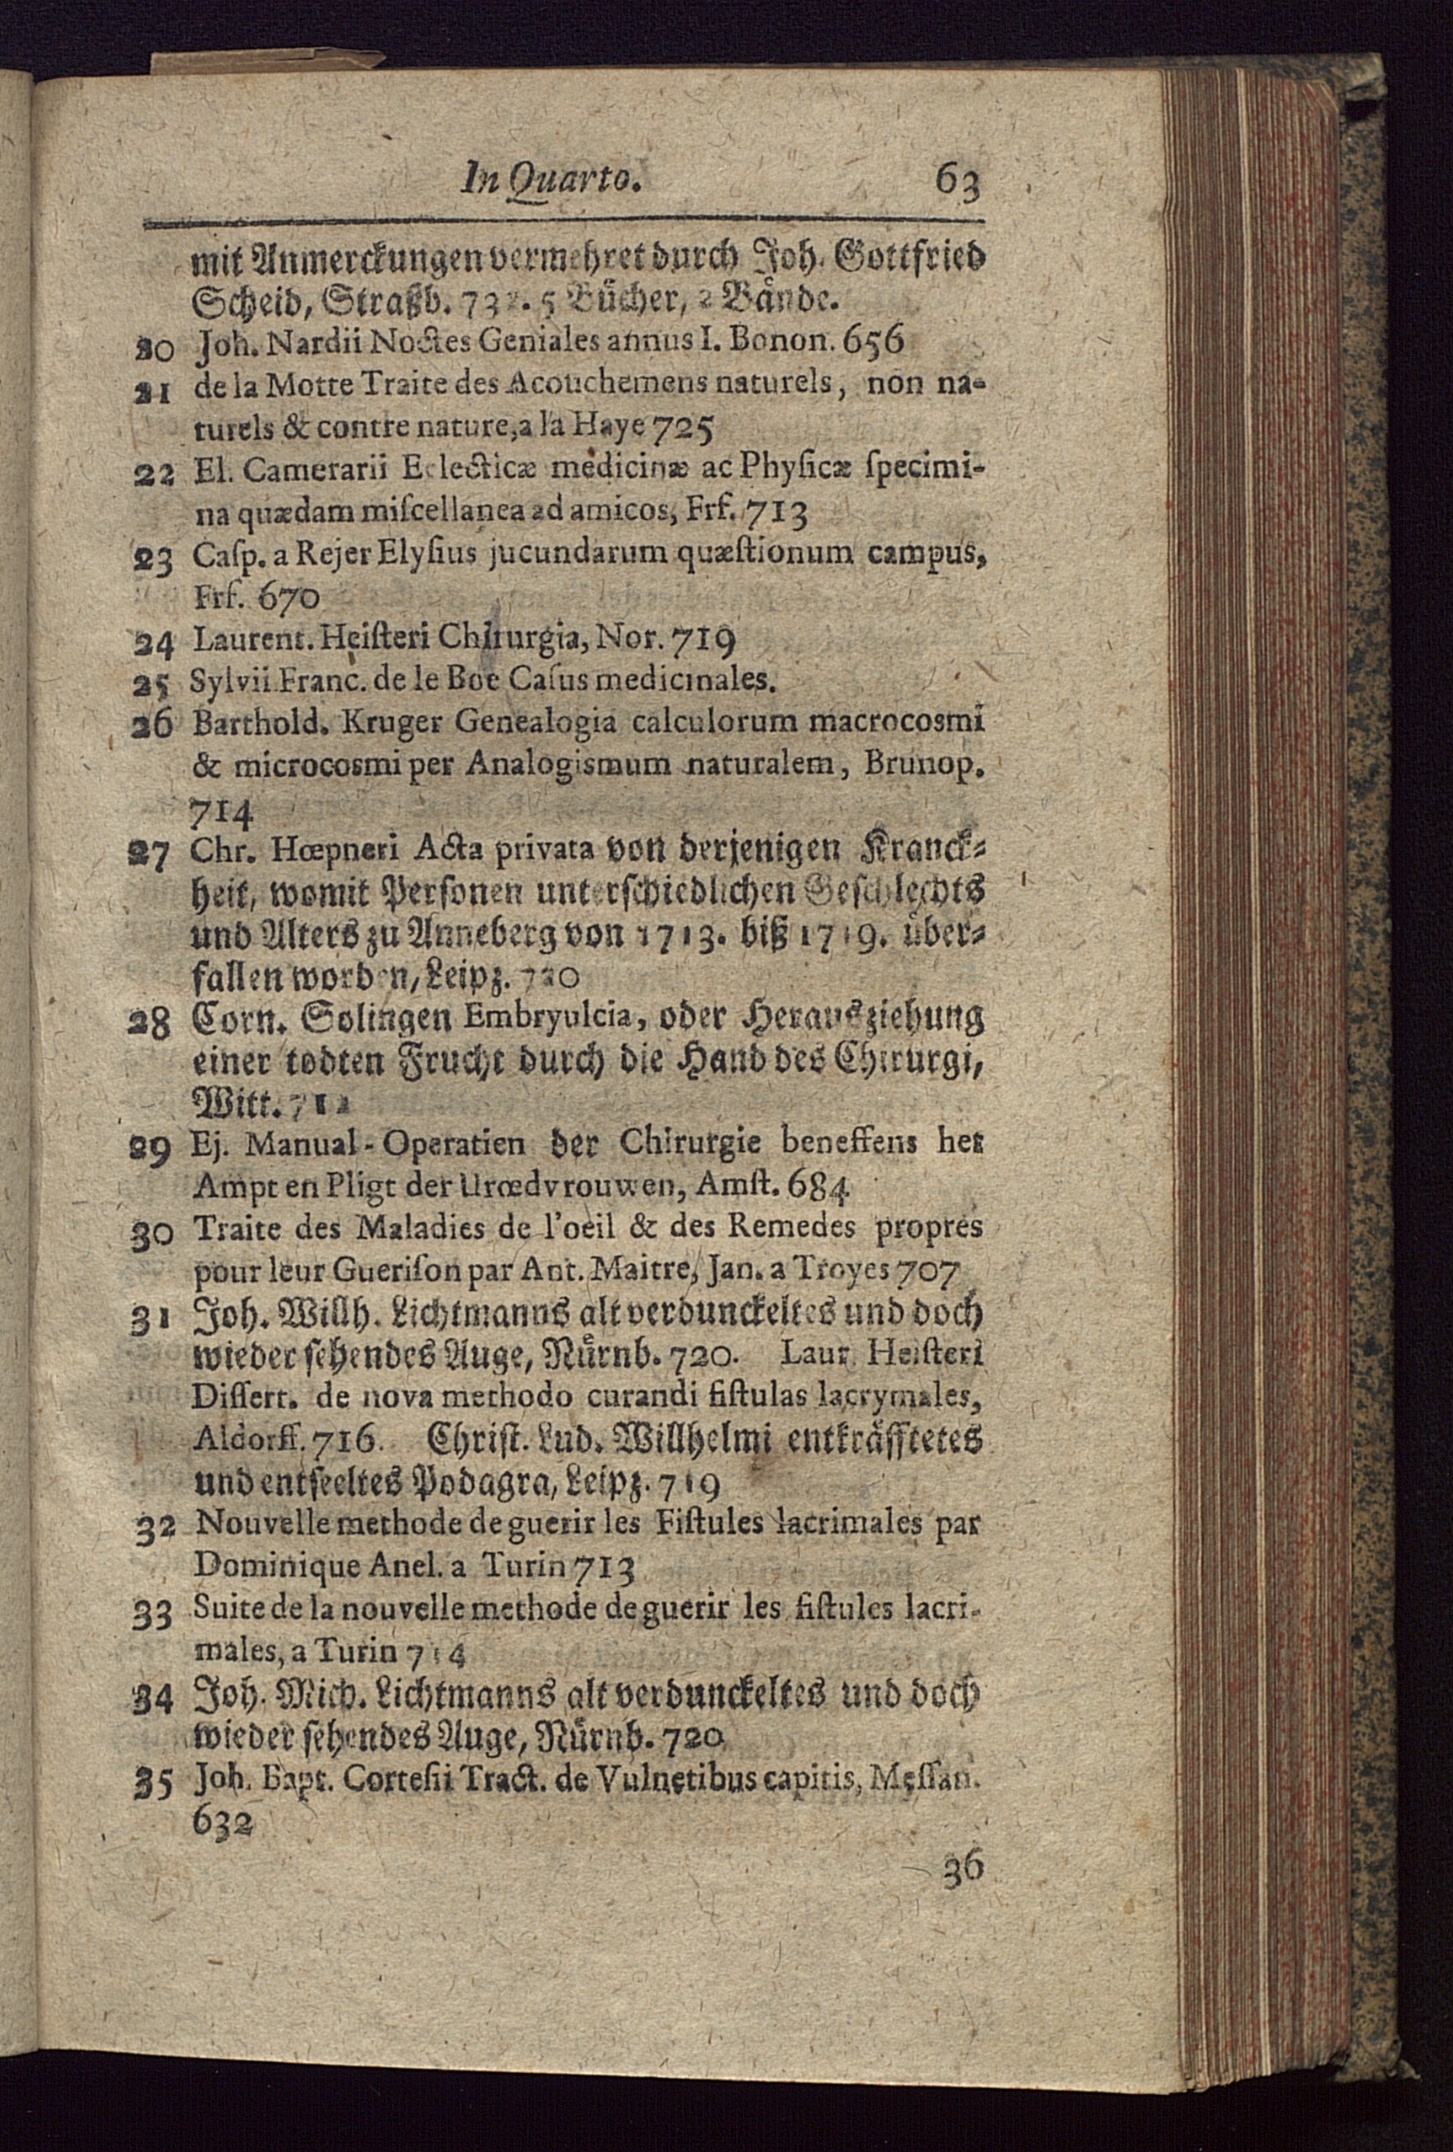 In Quarto. 63
mit Anmerckungen vermehret durch Joh. Gottfried
Scheid, Straßb. 732. 5 Bücher, 2 Bände.
20 Joh. Nardii Noctes Geniales annus I. Bonon. 656
21 de la Motte Traite des Acouchemens naturels, non na-
turels & contre nature, a la Haye 725
22 El. Camerarii Eclecticæ medicinæ ac Physicæ ſpecimi-
na quædam miſcellanea ad amicos, Frf. 713
23 Caſp. a Rejer Elyſius jucundarum quæſtionum campus,
Frf. 670
24 Laurent. Heiſteri Chirurgia, Nor. 719
25 Sylvii Franc. de le Boe Caſus medicinales.
26 Barthold. Kruger Genealogia calculorum macrocosmi
& microcosmi per Analogismum naturalem, Brunop.
714
27 Chr. Hœpneri Acta privata von derjenigen Kranck-
heit, womit Personen unterschiedlichen Geschlechts
und Alters zu Anneberg von 1713. biß 1719. über-
fallen worden, Leipz. 720
28 Corn. Solingen Embryulcia, oder Herausziehung
einer todten Frucht durch die Hand des Chirurgi,
Witt. 712
29 Ej. Manual-Operatien der Chirurgie beneffens het
Ampt en Pligt der Urœdvrouwen, Amſt. 684
30 Traite des Maladies de l'oeil & des Remedes propres
pour leur Gueriſon par Ant. Maitre, Jan. a Troyes 707
31 Joh. Willh. Lichtmanns alt verdunckeltes und doch
wieder sehendes Auge, Nürnb. 720. Laur. Heiſteri
Diſſert. de nova methodo curandi fiſtulas lacrymales,
Aldorff. 716. Christ. Lud. Willhelmi entkräfftetes
und entseeltes Podagra, Leipz. 719
32 Nouvelle methode de guerir les Fiſtules lacrimales par
Dominique Anel. a Turin 713
33 Suite de la nouvelle methode de guerir les fiſtules lacri-
males, a Turin 714
34 Joh. Mich. Lichtmanns alt verdunckeltes und doch
wieder sehendes Auge, Nürnb. 720
35 Joh. Bapt. Corteſii Tract. de Vulnetibus capitis, Meſſan.
632
36